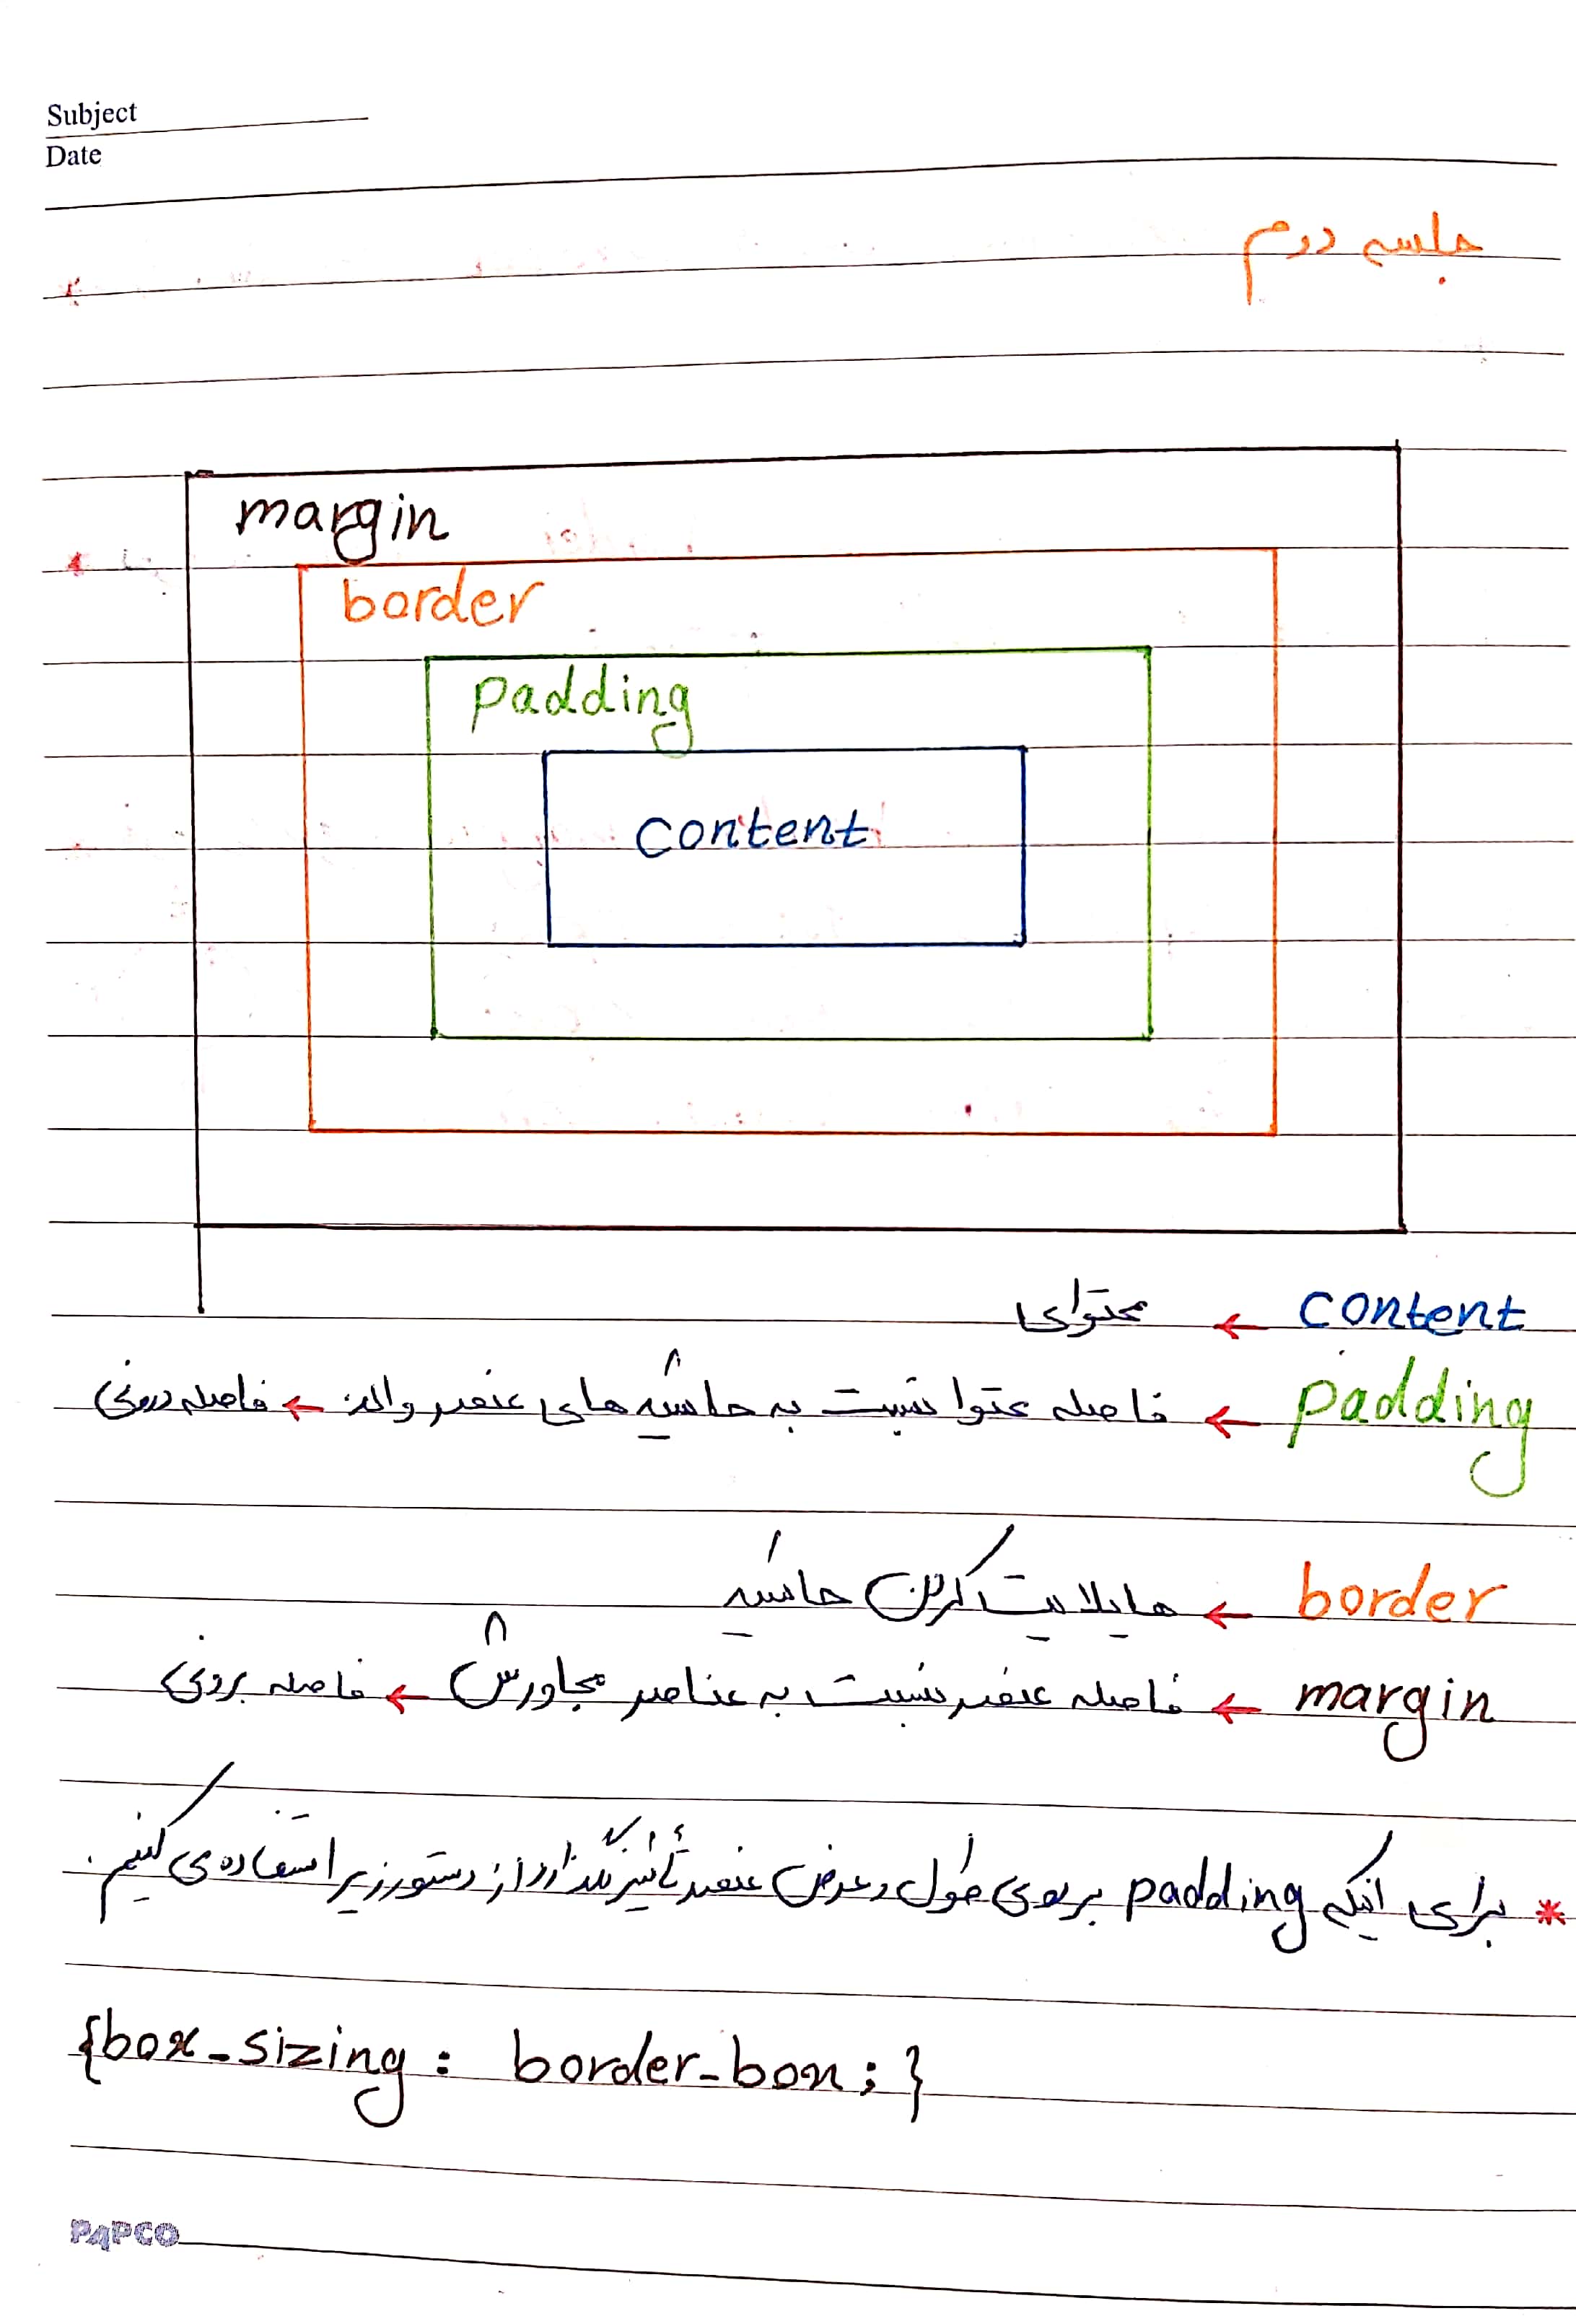 Subject
Date
جلسه دوم
margin
border
padding
content
content ← محتوای
padding ← فاصله محتوا نسبت به حاشیه های عنصر والد ← فاصله درونی
border ← هایلایت کردن حاشیه
margin ← فاصله عنصر نسبت به عناصر مجاورش ← فاصله برونی
* برای اینکه padding بر روی طول و عرض عنصر تأثیر نگذارد از دستور زیر استفاده می کنیم.
{box-sizing: border-box;}
PAPCO